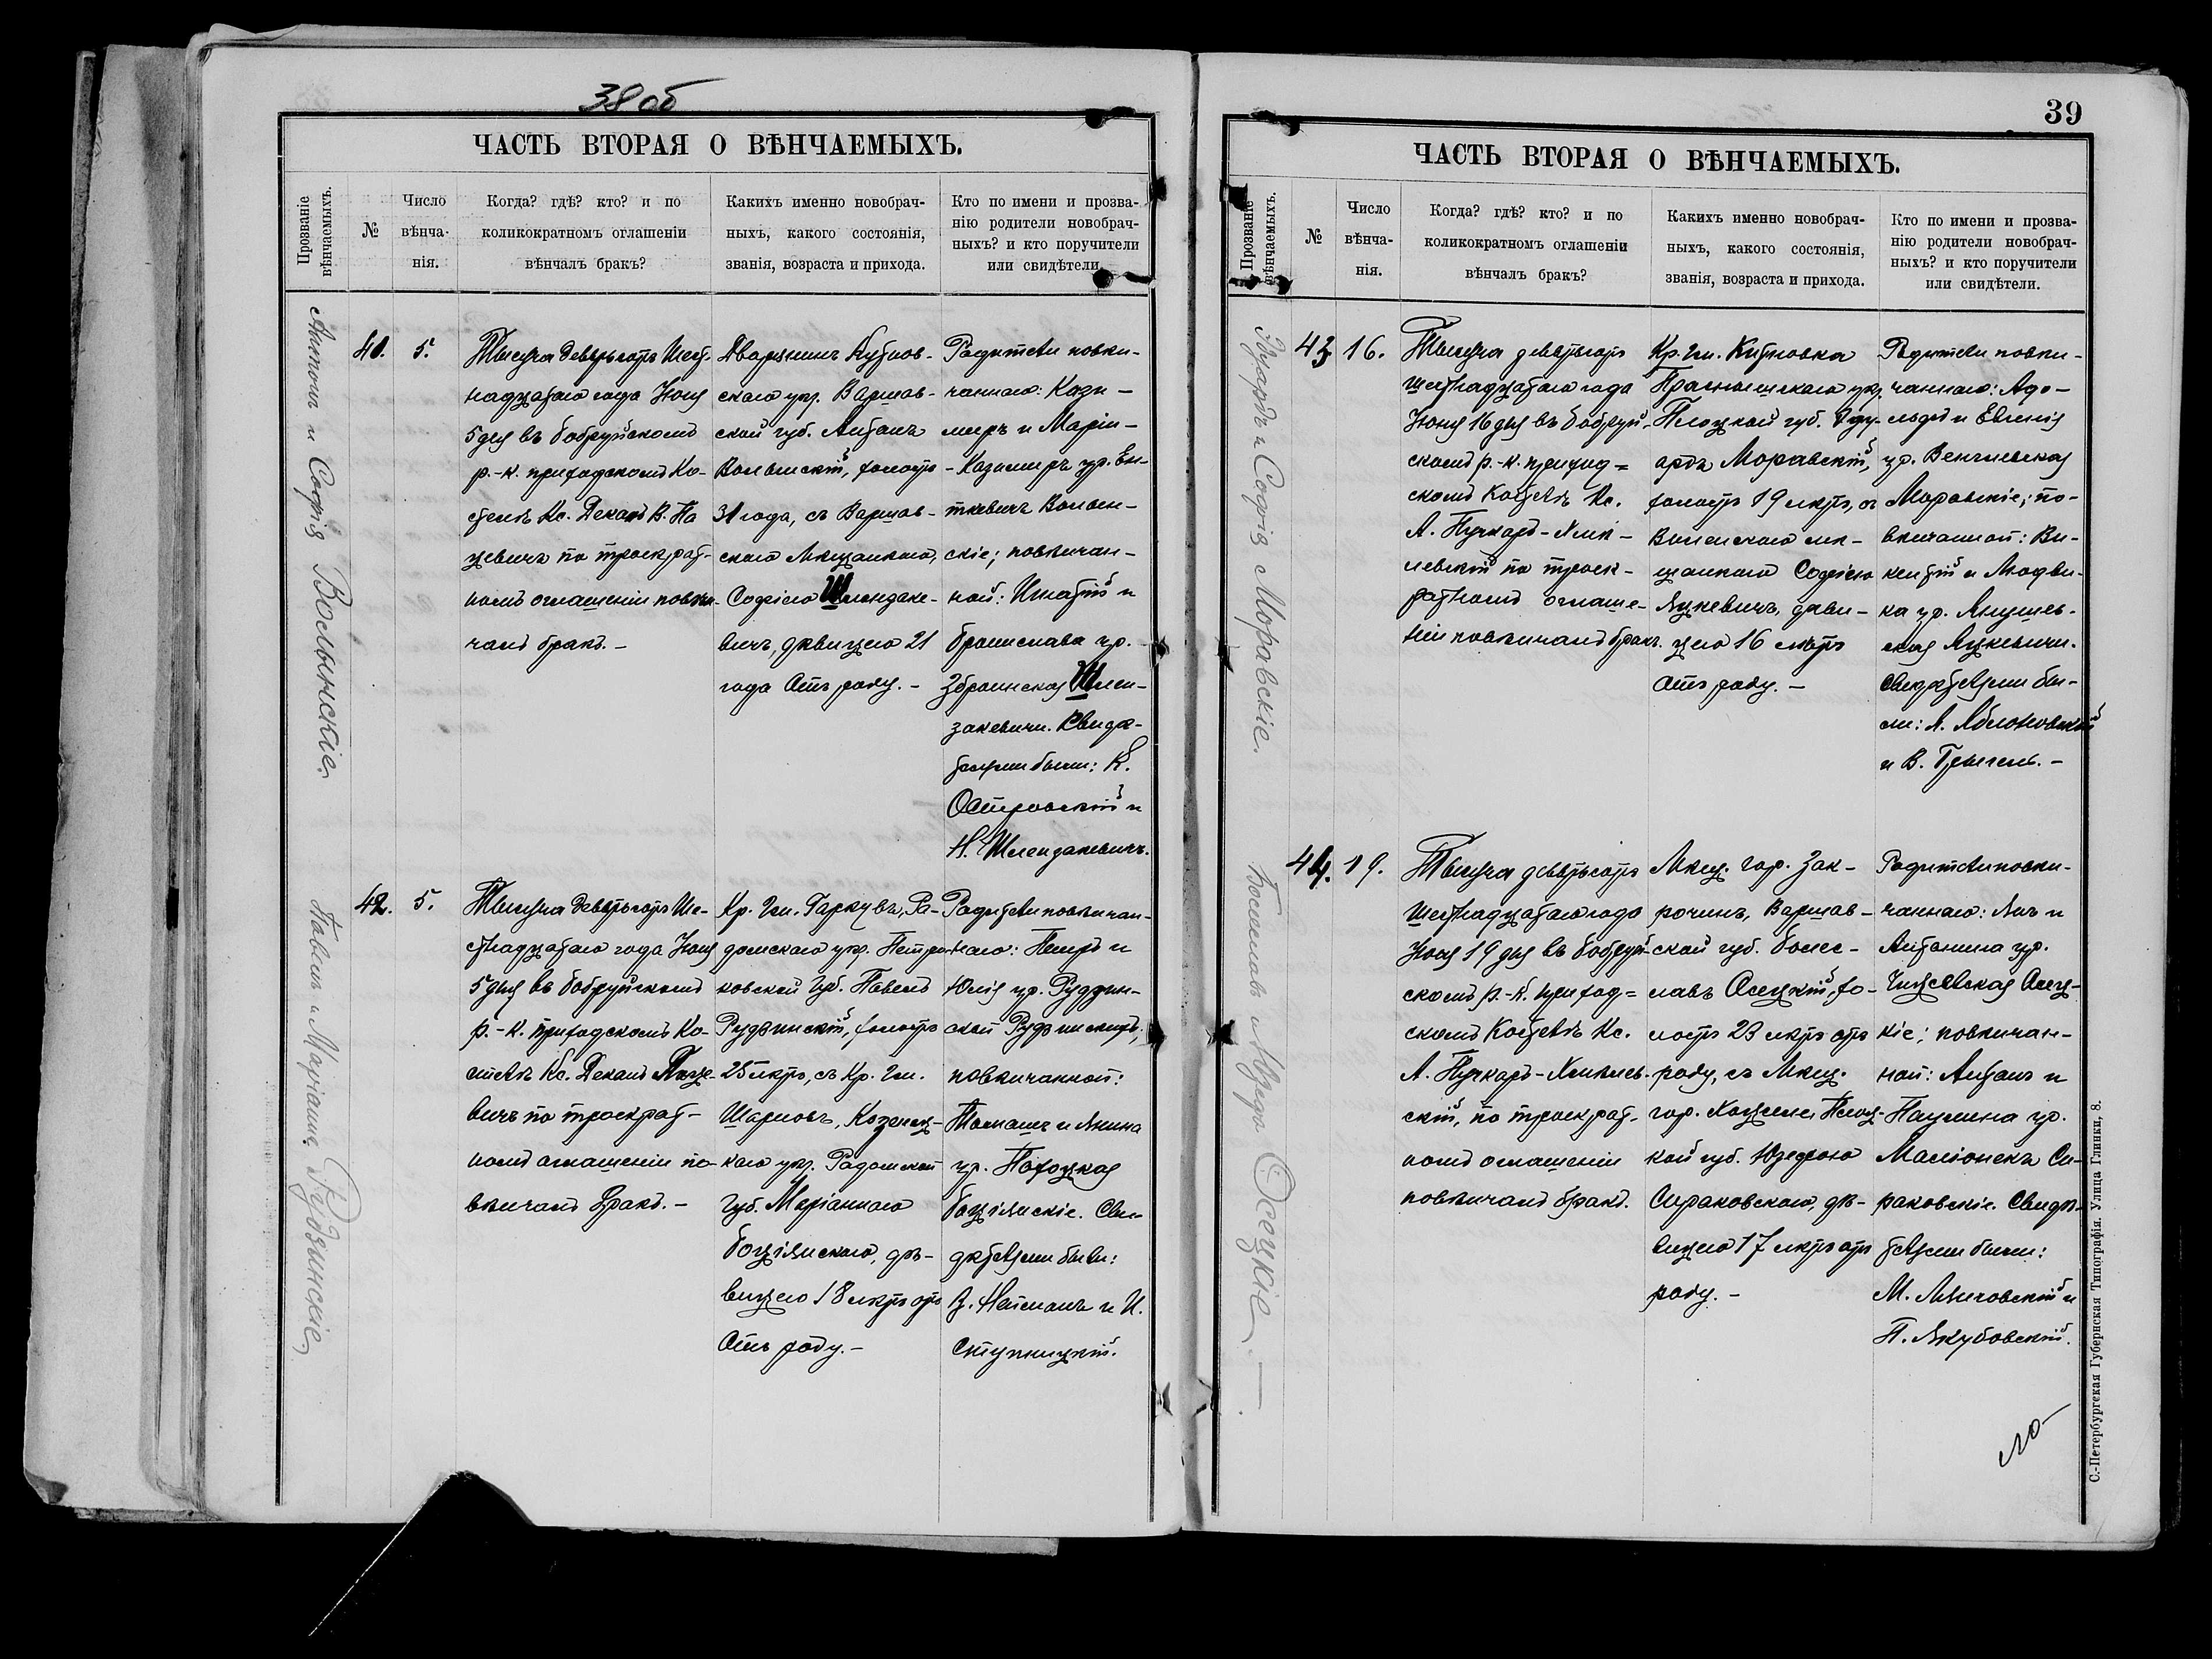 38 об
ЧАСТЬ ВТОРАЯ О ВѢНЧАЕМЫХЪ.
Прозваніе
вѣнчаемыхъ.
№
Число
вѣнча-
нія.
Когда? гдѣ? кто? и по
коликократномъ оглашеніи
вѣнчалъ бракъ?
Какихъ именно новобрач-
ныхъ, какого состоянія,
званія, возраста и прихода.
Кто по имени и прозва-
нію родители новобрач-
ныхъ? и кто поручители
или свидѣтели.
Антонъ и Софія Вольинскіе
41.
5.
Тысяча девятьсотъ Шест-
надцатаго года Іюня
5 дня въ Бобруйскомъ
р.-к. приходскомъ Ко-
стелѣ Кс. Деканъ В. Па
цевичъ по троекрат-
номъ оглашеніи повѣн-
чалъ бракъ. –
Дворянинъ Кутнов-
скаго уѣз. Варшав-
ской губ. Антонъ
Вольинскій, холостъ
31 года, съ Варшав-
скаго мѣщанкою,
Софіею Шлендзаке-
вичъ, дѣвицею 21
года отъ роду. –
Родители повѣн-
чаннаго: Кази-
миръ и Марія-
Казимира ур.
Вольин-
скіе; повѣнчан-
ной: Игнатій и
Бронислава ур.
Збраинская Шлен-
закевичи. Свидѣ-
телями были: К.
Островскій и
Н. Шлендзакевичъ.
Павелъ и Маріанна Рудзинскіе
42.
5.
Тысяча девятьсотъ Ше-
стнадцатаго года Іюня
5 дня въ Бобруйскомъ
р.-к. приходскомъ Ко-
стелѣ Кс. Деканъ Паце-
вичъ по троекрат-
номъ оглашеніи по-
вѣнчалъ бракъ. –
Кр. Гм. Гаркувъ, Ра-
домскаго уѣз. Петро-
ковской Губ. Павелъ
Рудзинскій, холостъ
25 лѣтъ, съ Кр. Гм.
Шарновъ, Козениц-
каго уѣз. Радомской
Губ. Маріанною
Боцянскою, дѣ-
вицею 18 лѣтъ отъ
отъ роду. –
Родители повѣнчан-
наго: Петръ и
Юлія ур. Рудзин-
ской Рудзинскихъ,
повѣнчанной:
Томашъ и Янина
ур. Потоцкая
Боцянскіе. Сви-
дѣтелями были:
В. Нейманъ и И.
Ступницкій.
39
ЧАСТЬ ВТОРАЯ О ВѢНЧАЕМЫХЪ.
Прозваніе
вѣнчаемыхъ.
№
Число
вѣнча-
нія.
Когда? гдѣ? кто? и по
коликократномъ оглашеніи
вѣнчалъ бракъ?
Какихъ именно новобрач-
ныхъ, какого состоянія,
званія, возраста и прихода.
Кто по имени и прозва-
нію родители новобрач-
ныхъ? и кто поручители
или свидѣтели.
Эдуардъ и Софія Моравскіе.
43
16.
Тысяча девятьсотъ
шестнадцатаго года
Іюня 16 дня въ Бобруй-
скомъ р.-к. приход=
скомъ Костелѣ Кс.
А. Пучкаръ-Хмѣ-
левскій по троек-
ратномъ оглаше-
ніи повѣнчалъ бракъ.
Кр. Гм. Китновка
Праснышскаго уѣз.
Плоцкой губ. Эду-
ардъ Моравскій,
холостъ 19 лѣтъ, съ
Виленскаго мѣ-
щанкою Софіею
Яцкевичъ, дѣви-
цею 16 лѣтъ
отъ роду. –
Родители повѣн-
чаннаго: Адо-
льфъ и Евгенія
ур. Венглевская
Моравскіе; по-
вѣнчанной: Ви-
кентій и Людви-
ка ур. Янушев-
ская Яцкевичи.
Свидѣтелями бы-
ли: А. Яблоновскій
и В. Тригель. –
Болеславъ и Юзефа Осецкіе. –
44.
19.
Тысяча девятьсотъ
шестнадцатаго года
Іюня 19 дня въ Бобруй-
скомъ р.-к. приход=
скомъ Костелѣ Кс.
А. Пучкаръ-Хмѣлев-
скій, по троекрат-
номъ оглашеніи
повѣнчалъ бракъ.
Мѣщ. гор. Зак-
рочинъ, Варшав-
ской губ. Болес-
лавъ Осецкій, хо-
лостъ 23 лѣтъ отъ
роду, съ Мѣщ.
гор. Хоржеле Плоц-
кой губ. Юзефою
Сираковскою, дѣ-
вицею 17 лѣтъ отъ
роду. –
Родители повѣн-
чаннаго: Янъ и
Антонина ур.
Осец-
кіе; повѣнчан-
ной: Антонъ и
Паулина ур.
Маліонекъ Си-
раковскіе. Свидѣ-
телями были:
М. и
П. Якубовскій.
С.-Петербургская Губернская Типографія. Улица Глинки, 8.